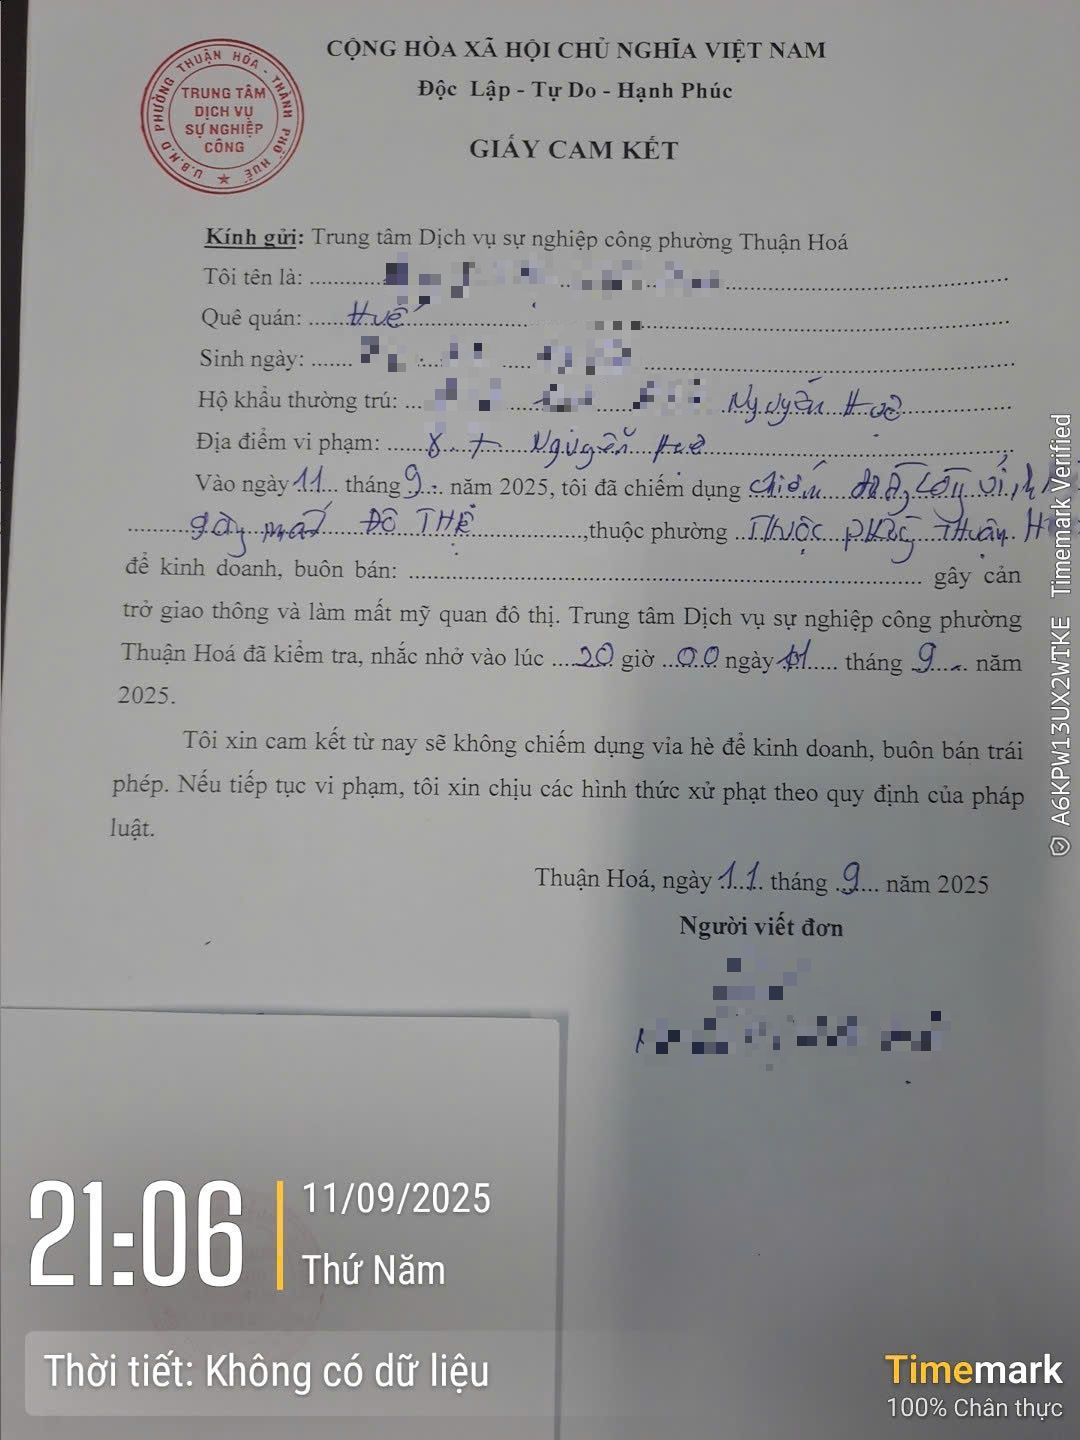 CỘNG HÒA XÃ HỘI CHỦ NGHĨA VIỆT NAM
Độc Lập - Tự Do - Hạnh Phúc
U.B.N.D PHƯỜNG THUẬN HÓA - THÀNH PHỐ HUẾ
TRUNG TÂM
DỊCH VỤ
SỰ NGHIỆP
CÔNG
GIẤY CAM KẾT
Kính gửi: Trung tâm Dịch vụ sự nghiệp công phường Thuận Hoá
Tôi tên là:
Quê quán: Huế
Sinh ngày:
Hộ khẩu thường trú: Nguyễn Huệ
Địa điểm vi phạm: Nguyễn Huệ
Vào ngày 11 tháng 9 năm 2025, tôi đã chiếm dụng chiếm
gây mất ĐÔ THỊ, thuộc phường THUỘC Thuận
để kinh doanh, buôn bán: gây cản
trở giao thông và làm mất mỹ quan đô thị. Trung tâm Dịch vụ sự nghiệp công phường
Thuận Hoá đã kiểm tra, nhắc nhở vào lúc 20 giờ 00 ngày 11 tháng 9 năm
2025.
Tôi xin cam kết từ nay sẽ không chiếm dụng vỉa hè để kinh doanh, buôn bán trái
phép. Nếu tiếp tục vi phạm, tôi xin chịu các hình thức xử phạt theo quy định của pháp
luật.
Thuận Hoá, ngày 11 tháng 9 năm 2025
Người viết đơn
A6KPW13UX2WTKE Timemark Verified
21:06
11/09/2025
Thứ Năm
Thời tiết: Không có dữ liệu
Timemark
100% Chân thực